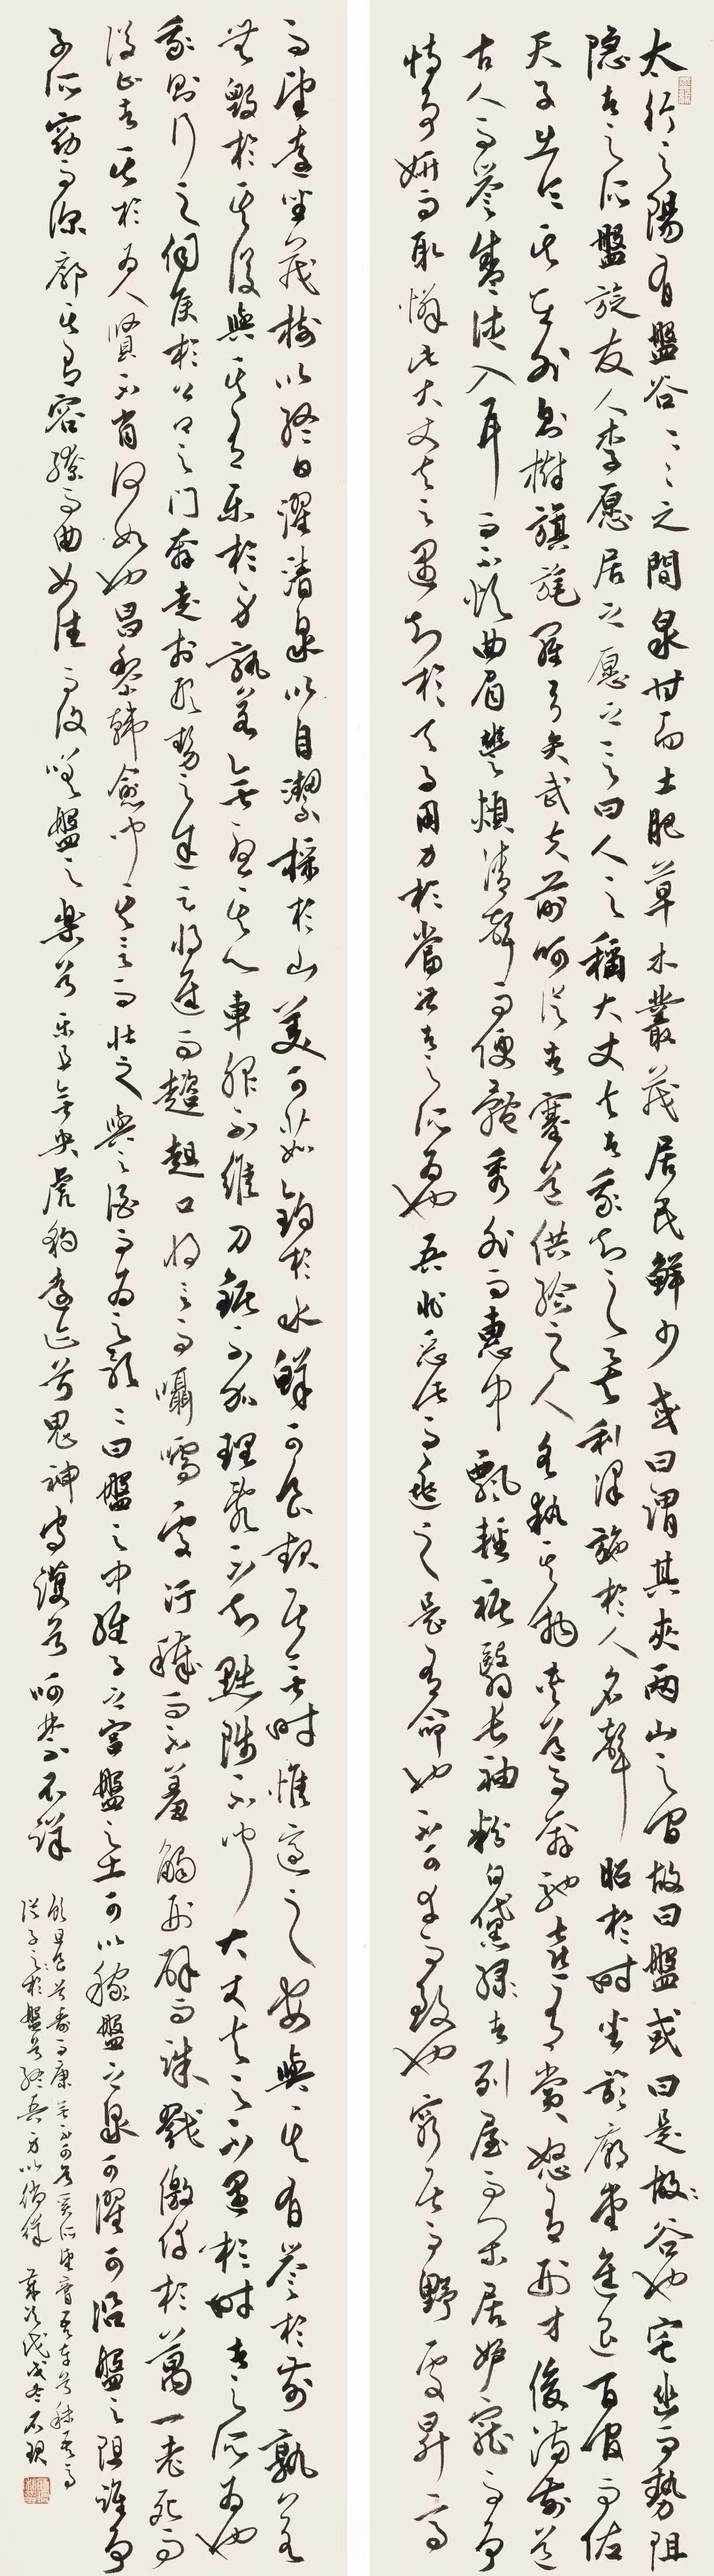 太行之陽有盤谷〻之間泉甘而土肥草木叢茂居民鮮少或曰謂其夾兩山之間故曰盤或曰是故谷也宅幽而勢阻
隱者之所盤旋友人李愿居之愿之言曰人之稱大丈夫者我知之矣利澤施於人名聲昭於時坐於廟堂進退百官而佐
天子出令其在外則樹旗旄羅弓矢武夫前呵從者塞途供給之人各執其物夾道而奔馳喜有賞怒有刑才俊滿前道
古今而譽盛德入耳而不煩曲眉豐頰清聲而便體秀外而惠中飄輕裾翳長袖粉白黛綠者列屋而閑居妒寵而負
恃爭妍而取憐此大丈夫之遇知於天子用力於當世者之所為也吾非惡此而逃之是有命也不可幸而致也窮居而野處昇高
而望遠坐茂樹以終日濯清泉以自潔採於山美可茹釣於水鮮可食起居無時惟適之安與其有譽於前孰若
無毀於其後與其有樂於身孰若無憂其心車服不維刀鋸不加理亂不知黜陟不聞大丈夫之不遇於時者之所為也
我則行之伺候於公卿之門奔走於形勢之途足將進而趑趄口將言而囁嚅處汙穢而不羞觸刑辟而誅戮僥倖於萬一老死而
後止者其於為人賢不肖何如也昌黎韓愈聞其言而壯之與之酒而為之歌〻曰盤之中維子之宮盤之土可以稼盤之泉可濯可沿盤之阻誰爭
子所窈而深廓其有容繚而曲如往而復嗟盤之樂兮樂且無央虎豹遠跡兮鬼神守護兮呵禁不祥
飲且食兮壽而康無不足兮奚所望膏吾車兮秣吾馬
從子於盤兮終吾身以徜徉 歲次戊戌冬